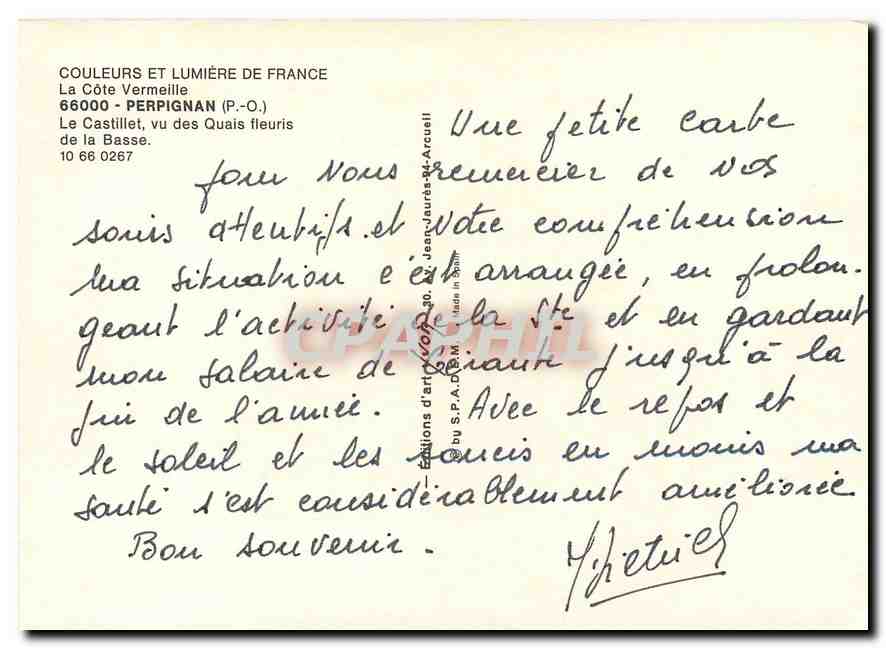 COULEURS ET LUMIÈRE DE FRANCE
La Côte Vermeille
66000 - PERPIGNAN (P.-O.)
Le Castillet, vu des Quais fleuris
de la Basse.
10 66 0267
Une petite carte
pour vous remercier de vos
soins attentifs et votre compréhension
ma situation c'est arrangée, en prolon-
geant l'activité de la Sté et en gardant
mon salaire de Gérante jusqu'à la
fin de l'année. Avec le repos et
le soleil et les soucis en moins ma
santé s'est considérablement améliorée
Bon souvenir.
Dietrich
— Éditions d'art YVON, 30, Av. Jean-Jaurès-94-Arcueil
© by S.P.A.D.E.M. Made in Spain
CPAPHIL